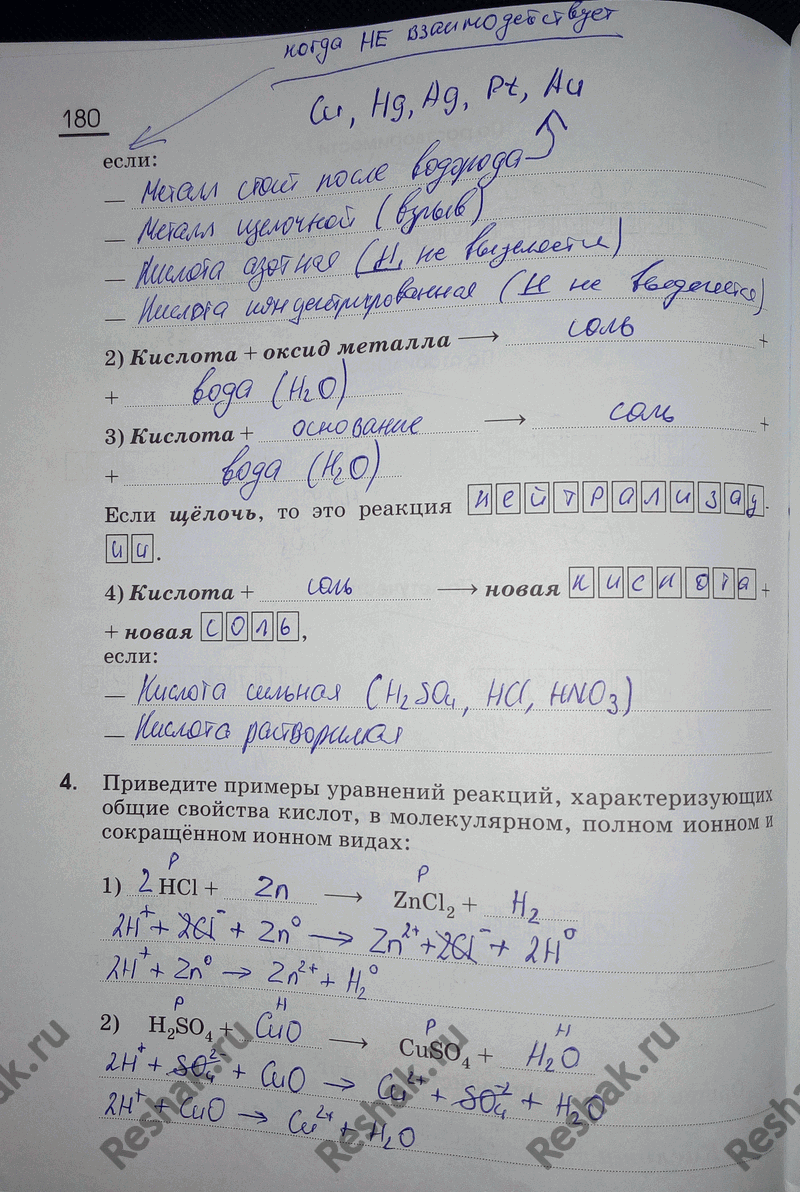 когда НЕ взаимодействует
Cu, Hg, Ag, Pt, Au
180
если:
— Металл стоит после водорода
— Металл щелочной (взрыв)
— Кислота азотная (H₂ не выделяется)
— Кислота концентрированная (H не выделяется)
2) Кислота + оксид металла ⟶ соль +
+ вода (H₂O)
3) Кислота + основание ⟶ соль +
+ вода (H₂O)
Если щёлочь, то это реакция нейтрализац-
ии.
4) Кислота + соль ⟶ новая кислота +
+ новая соль,
если:
— Кислота сильная (H₂SO₄, HCl, HNO₃)
— Кислота растворимая
4. Приведите примеры уравнений реакций, характеризующих
общие свойства кислот, в молекулярном, полном ионном и
сокращённом ионном видах:
р р
1) 2 HCl + Zn ⟶ ZnCl₂ + H₂
2H⁺ + 2Cl⁻ + Zn⁰ → Zn²⁺ + 2Cl⁻ + 2H⁰
2H⁺ + Zn⁰ → Zn²⁺ + H₂⁰
р н р н
2) H₂SO₄ + CuO ⟶ CuSO₄ + H₂O
2H⁺ + SO₄²⁻ + CuO → Cu²⁺ + SO₄²⁻ + H₂O
2H⁺ + CuO → Cu²⁺ + H₂O
Reshak.ru Reshak.ru Reshak.ru Reshak.ru